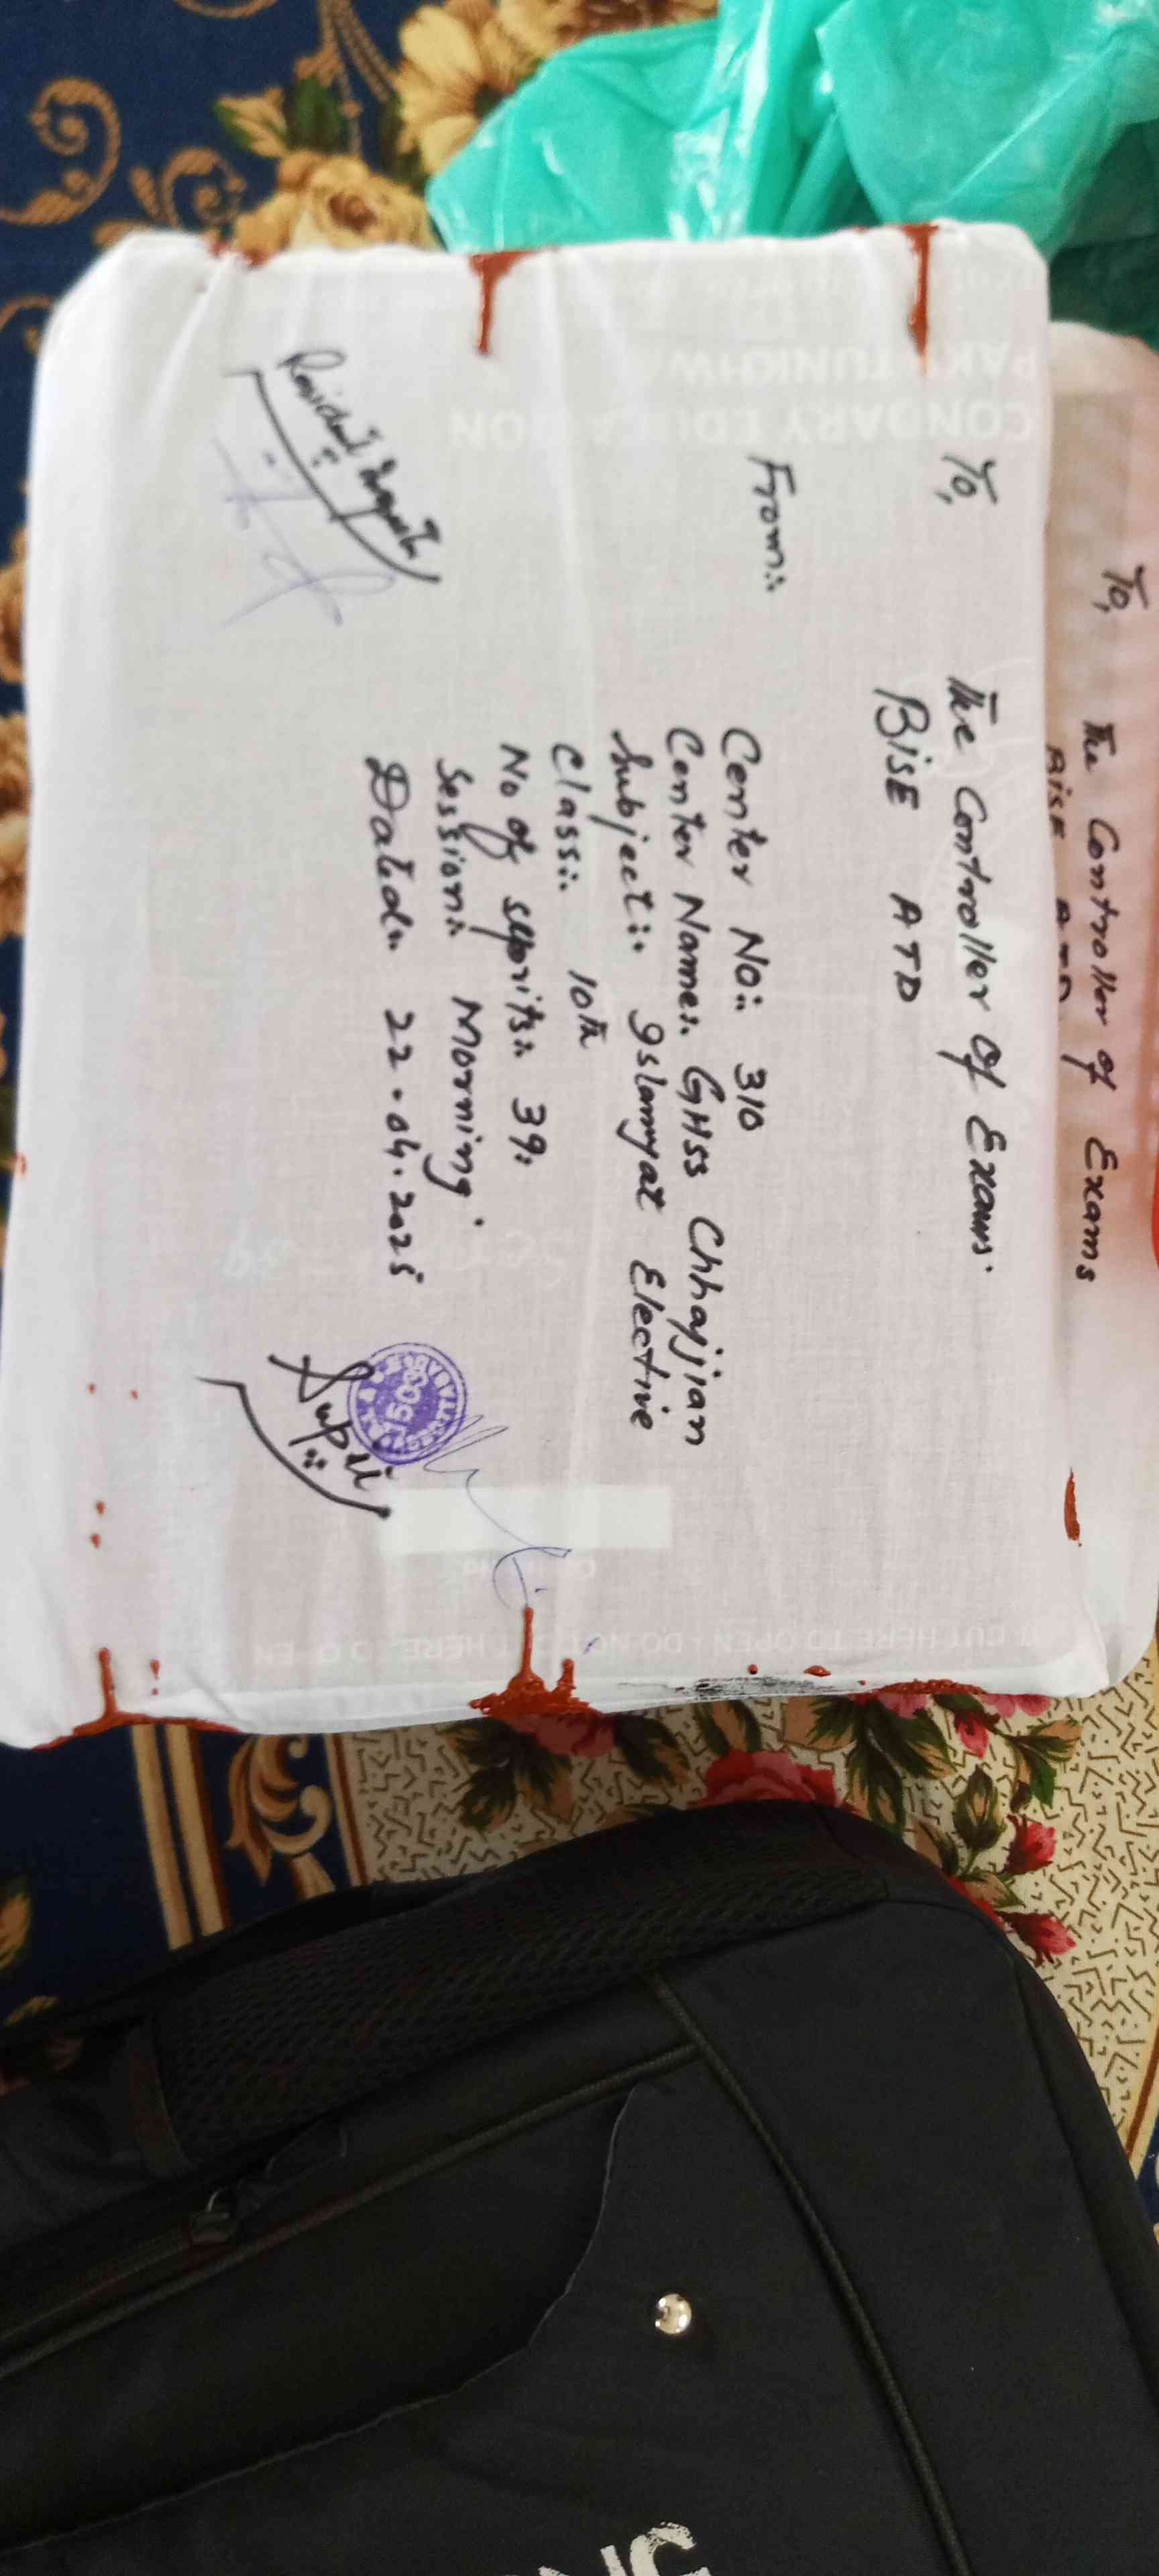 To,
The Controller of Exams.
BISE ATD
From:
Center No: 310
Center Name: GHSS Chhajjian
Subject: Islamyat Elective
Class: 10th
No of scripts: 39
Session: Morning
Dated: 22.04.2025
Resident Inspector
Supdt
To,
The Controller of Exams
BISE ATD
CONDARY EDUCATION
CUT HERE TO OPEN - DO NOT CUT HERE TO OPEN